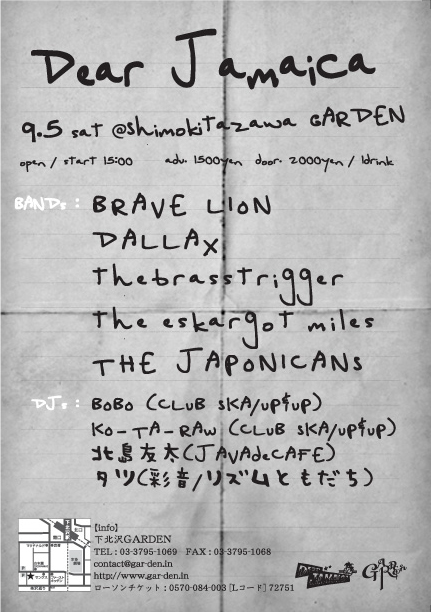 Dear Jamaica
9.5 sat @shimokitazawa GARDEN
open / start 15:00 adv. 1500yen door. 2000yen / 1drink
BANDs : BRAVE LION
DALLAX
thebrasstrigger
the eskargot miles
THE JAPONICANs
DJs : BoBo (CLUB SKA/up♯up)
KO-TA-RAW (CLUB SKA/up♯up)
北島友太(JAVAdeCAFE)
タツ(彩音/リズムともだち)
【info】
下北沢GARDEN
TEL : 03-3795-1069 FAX : 03-3795-1068
contact@gar-den.in
http://www.gar-den.in
ローソンチケット : 0570-084-003 [Lコード] 72751
GARDEN